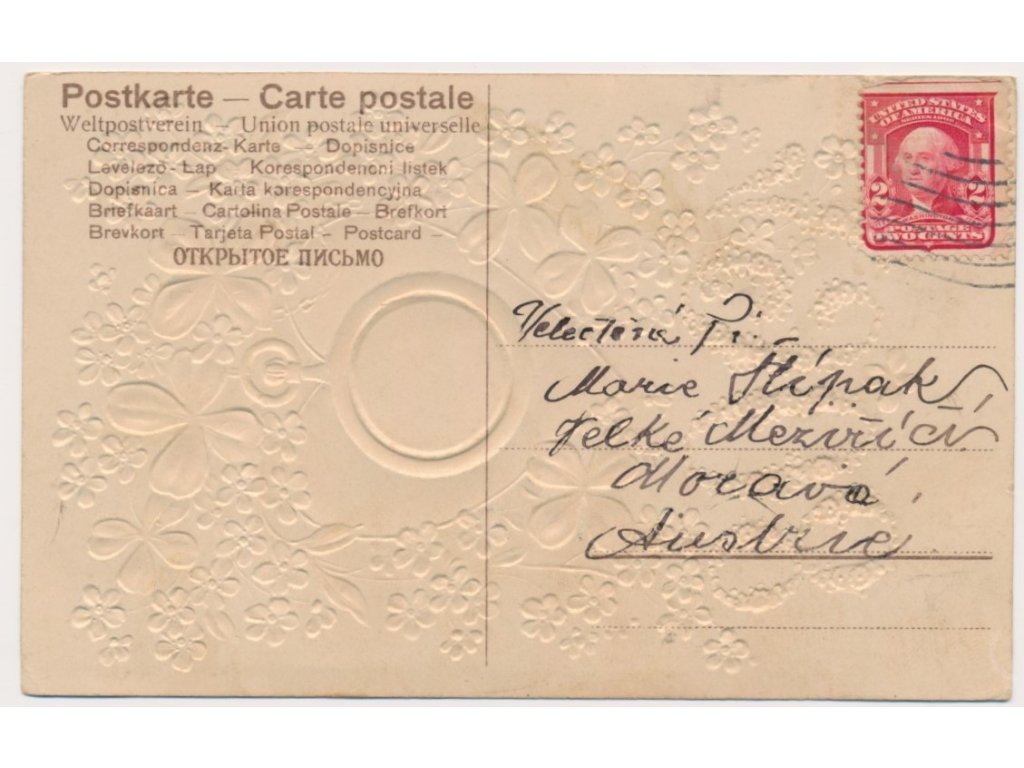 Postkarte — Carte postale
Weltpostverein — Union postale universelle
Correspondenz-Karte — Dopisnice
Levelező-Lap Korespondencni listek
Dopisnica — Karta korespondencyjna
Briefkaart — Cartolina Postale — Brefkort
Brevkort — Tarjeta Postal — Postcard —
ОТКРЫТОЕ ПИСЬМО
UNITED STATES
OF AMERICA
SERIES 1902
2 2
WASHINGTON
POSTAGE
TWO CENTS
Velectěná Pí.
Marie Štípak
Velké Meziříčí
Morava
Austrie